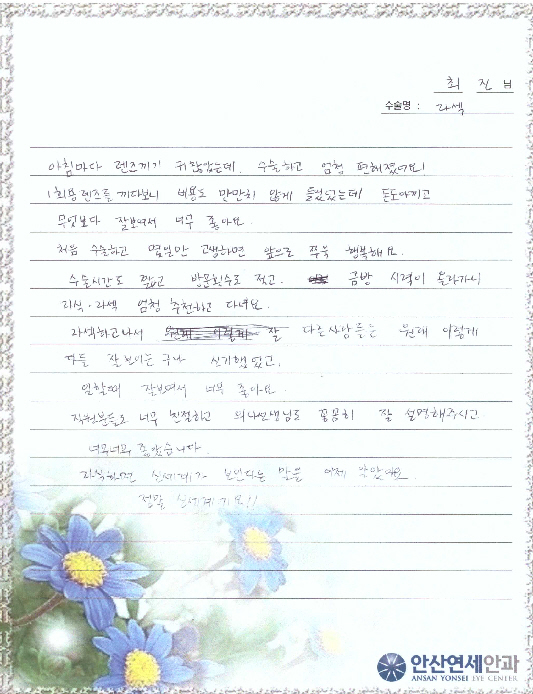 최 진 님
수술명 : 라섹
아침마다 렌즈끼기 귀찮았는데, 수술하고 엄청 편해졌어요!
1회용렌즈를 끼다보니 비용도 만만치 않게 들었었는데 돈도아끼고
무엇보다 잘보여서 너무 좋아요.
처음 수술하고 몇일만 고생하면 앞으로 쭈욱 행복해요
수술시간도 짧고 방문횟수도 적고. 금방 시력이 올라가니
라식·라섹 엄청 추천하고 다녀요.
라섹하고나서 다른사람들은 원래 이렇게
다들 잘보이는구나 신기했었고.
일할때 잘보여서 너무 좋아요.
직원분들도 너무 친절하고 의사선생님도 꼼꼼히 잘 설명해주시고
너무너무 좋았습니다.
라식하면 신세계가 보인다는 말을 이제 알았어요.
정말 신세계에요!!
안산연세안과
ANSAN YONSEI EYE CENTER